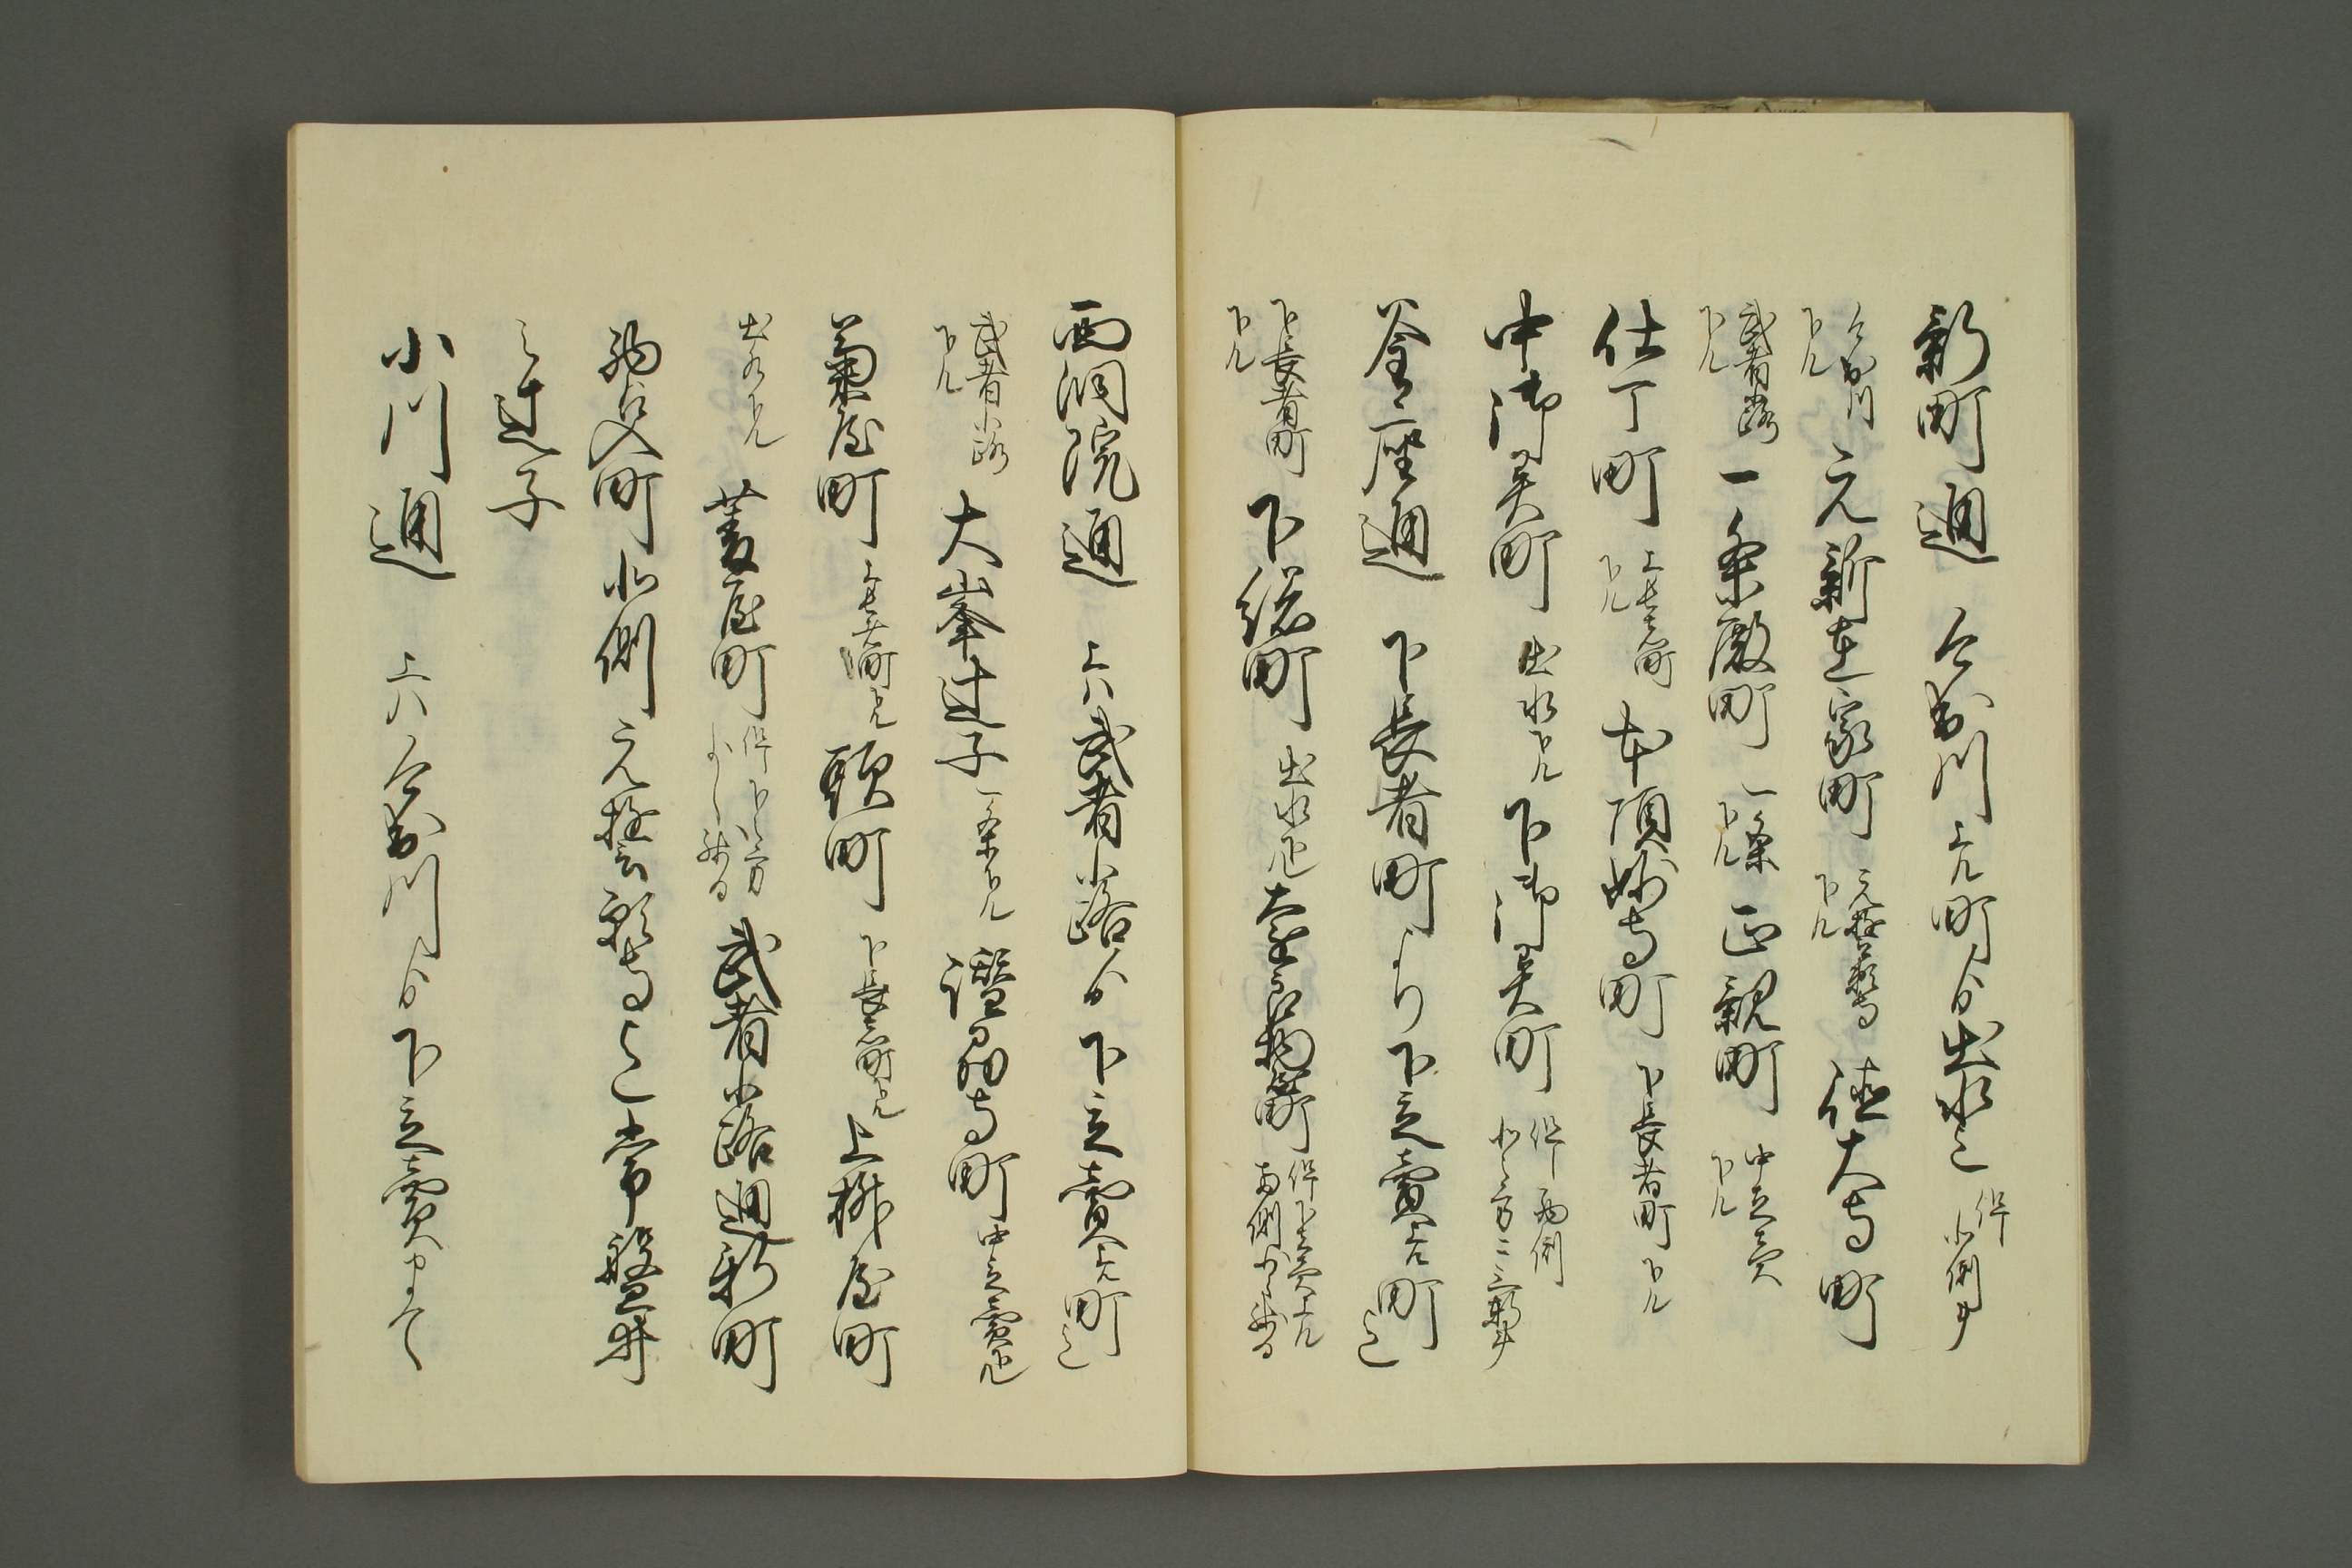 新町通　今出川上ル町ゟ出水迄 但北側斗
今出川下ル 元新在家町 元誓願寺下ル 徳大寺町
武者小路下ル 一条殿町 一条下ル 正親町 中立売下ル
仕丁町 上長者町下ル 本頂妙寺町 下長者町下ル
中御霊町 出水下ル 下御霊町 但両側北之方二三軒斗
釜座通　下長者町より下立売上ル町迄
下長者町下ル 下総町 出水上ル 奈良物町 但下立売上ル
西洞院通　上ハ武者小路ゟ下立売上ル町迄
武者小路下ル 大峯辻子 一条下ル 讃州寺町 中立売上ル
菊屋町 上長者町下ル 頭町 下長者町下ル 上桝屋町
出水下ル 菱屋町 但下之方少し残る 武者小路通新町
西入町北側元誓願寺と常盤井
之辻子
小川通　上ハ今出川ゟ下立売まて